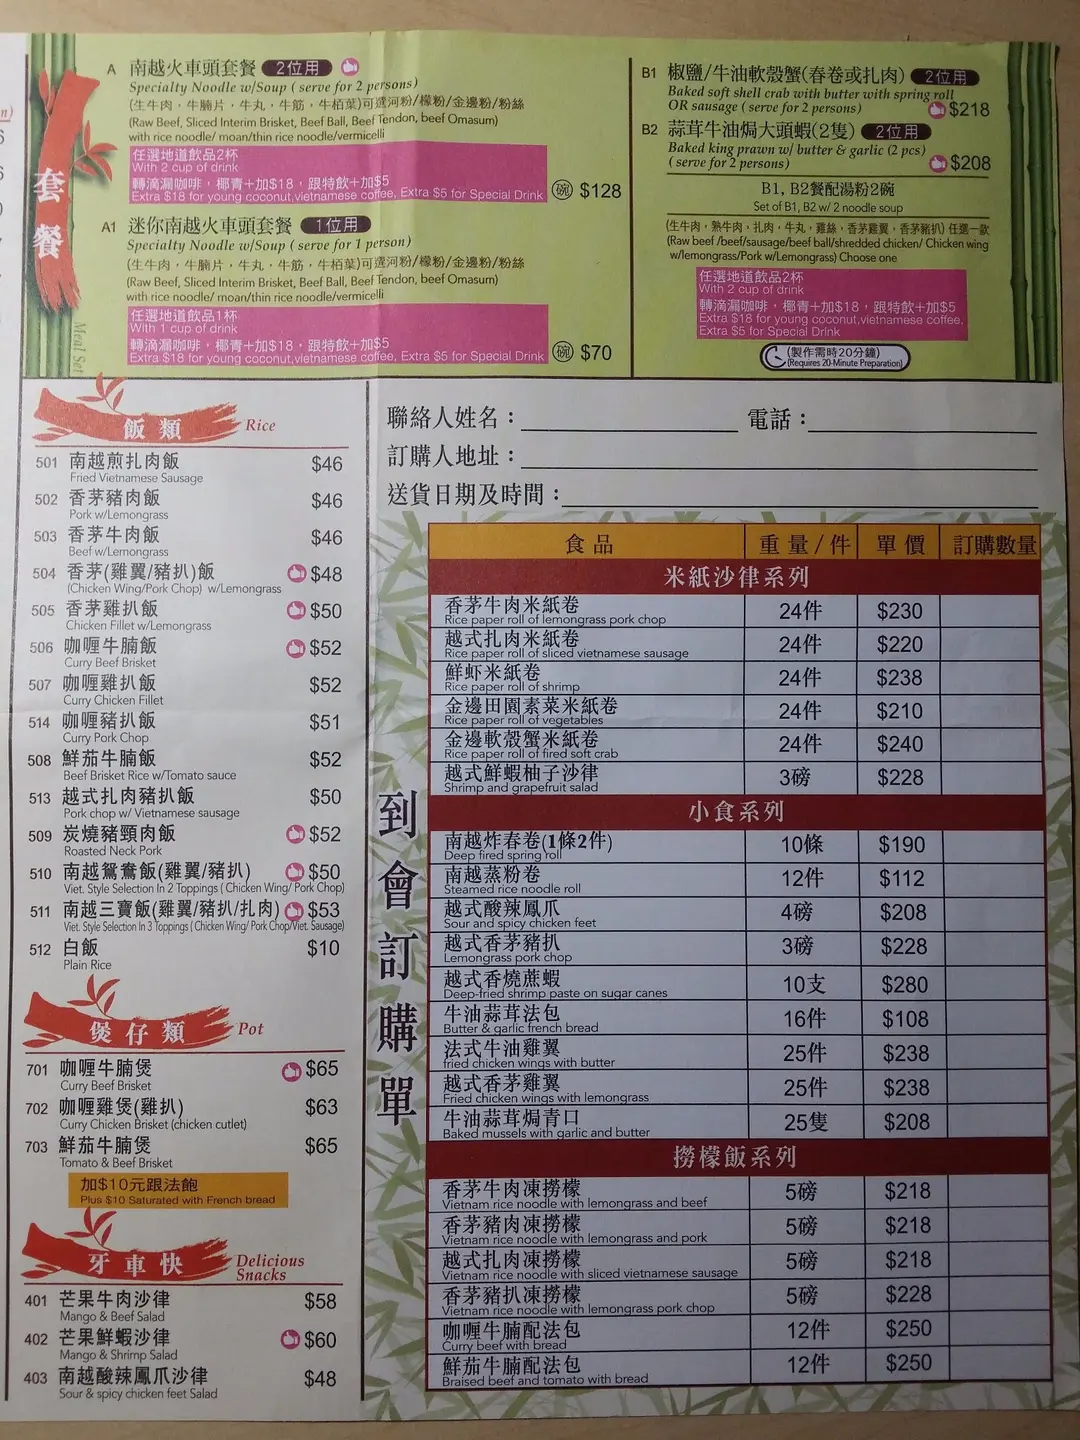 套餐
Meal Set
A 南越火車頭套餐 2位用
Specialty Noodle w/Soup ( serve for 2 persons)
(生牛肉，牛腩片，牛丸，牛筋，牛栢葉)可選河粉/檬粉/金邊粉/粉絲
(Raw Beef, Sliced Interim Brisket, Beef Ball, Beef Tendon, beef Omasum)
with rice noodle/ moan/thin rice noodle/vermicelli
任選地道飲品2杯
With 2 cup of drink
轉滴漏咖啡，椰青+加$18，跟特飲+加$5
Extra $18 for young coconut,vietnamese coffee, Extra $5 for Special Drink
碗 $128
A1 迷你南越火車頭套餐 1位用
Specialty Noodle w/Soup ( serve for 1 person)
(生牛肉，牛腩片，牛丸，牛筋，牛栢葉)可選河粉/檬粉/金邊粉/粉絲
(Raw Beef, Sliced Interim Brisket, Beef Ball, Beef Tendon, beef Omasum)
with rice noodle/ moan/thin rice noodle/vermicelli
任選地道飲品1杯
With 1 cup of drink
轉滴漏咖啡，椰青+加$18，跟特飲+加$5
Extra $18 for young coconut,vietnamese coffee, Extra $5 for Special Drink
碗 $70
B1 椒鹽/牛油軟殼蟹(春卷或扎肉) 2位用
Baked soft shell crab with butter with spring roll
OR sausage ( serve for 2 persons) $218
B2 蒜茸牛油焗大頭蝦(2隻) 2位用
Baked king prawn w/ butter & garlic (2 pcs)
( serve for 2 persons) $208
B1, B2餐配湯粉2碗
Set of B1, B2 w/ 2 noodle soup
(生牛肉，熟牛肉，扎肉，牛丸，雞絲，香茅雞翼，香茅豬扒) 任選一款
(Raw beef /beef/sausage/beef ball/shredded chicken/ Chicken wing
w/lemongrass/Pork w/Lemongrass) Choose one
任選地道飲品2杯
With 2 cup of drink
轉滴漏咖啡，椰青+加$18，跟特飲+加$5
Extra $18 for young coconut,vietnamese coffee,
Extra $5 for Special Drink
(製作需時20分鐘)
(Requires 20-Minute Preparation)
飯類 Rice
501 南越煎扎肉飯 $46
Fried Vietnamese Sausage
502 香茅豬肉飯 $46
Pork w/Lemongrass
503 香茅牛肉飯 $46
Beef w/Lemongrass
504 香茅(雞翼/豬扒)飯 $48
(Chicken Wing/Pork Chop) w/Lemongrass
505 香茅雞扒飯 $50
Chicken Fillet w/Lemongrass
506 咖喱牛腩飯 $52
Curry Beef Brisket
507 咖喱雞扒飯 $52
Curry Chicken Fillet
514 咖喱豬扒飯 $51
Curry Pork Chop
508 鮮茄牛腩飯 $52
Beef Brisket Rice w/Tomato sauce
513 越式扎肉豬扒飯 $50
Pork chop w/ Vietnamese sausage
509 炭燒豬頸肉飯 $52
Roasted Neck Pork
510 南越鴛鴦飯(雞翼/豬扒) $50
Viet. Style Selection In 2 Toppings ( Chicken Wing/ Pork Chop)
511 南越三寶飯(雞翼/豬扒/扎肉) $53
Viet. Style Selection In 3 Toppings ( Chicken Wing/ Pork Chop/Viet. Sausage)
512 白飯 $10
Plain Rice
煲仔類 Pot
701 咖喱牛腩煲 $65
Curry Beef Brisket
702 咖喱雞煲(雞扒) $63
Curry Chicken Brisket (chicken cutlet)
703 鮮茄牛腩煲 $65
Tomato & Beef Brisket
加$10元跟法飽
Plus $10 Saturated with French bread
牙車快 Delicious Snacks
401 芒果牛肉沙律 $58
Mango & Beef Salad
402 芒果鮮蝦沙律 $60
Mango & Shrimp Salad
403 南越酸辣鳳爪沙律 $48
Sour & spicy chicken feet Salad
聯絡人姓名： 電話：
訂購人地址：
送貨日期及時間：
到會訂購單
食品 重量/件 單價 訂購數量
米紙沙律系列
香茅牛肉米紙卷 24件 $230
Rice paper roll of lemongrass pork chop
越式扎肉米紙卷 24件 $220
Rice paper roll of sliced vietnamese sausage
鮮虾米紙卷 24件 $238
Rice paper roll of shrimp
金邊田園素菜米紙卷 24件 $210
Rice paper roll of vegetables
金邊軟殼蟹米紙卷 24件 $240
Rice paper roll of fired soft crab
越式鮮蝦柚子沙律 3磅 $228
Shrimp and grapefruit salad
小食系列
南越炸春卷(1條2件) 10條 $190
Deep fired spring roll
南越蒸粉卷 12件 $112
Steamed rice noodle roll
越式酸辣鳳爪 4磅 $208
Sour and spicy chicken feet
越式香茅豬扒 3磅 $228
Lemongrass pork chop
越式香燒蔗蝦 10支 $280
Deep-fried shrimp paste on sugar canes
牛油蒜茸法包 16件 $108
Butter & garlic french bread
法式牛油雞翼 25件 $238
fried chicken wings with butter
越式香茅雞翼 25件 $238
Fried chicken wings with lemongrass
牛油蒜茸焗青口 25隻 $208
Baked mussels with garlic and butter
撈檬飯系列
香茅牛肉凍撈檬 5磅 $218
Vietnam rice noodle with lemongrass and beef
香茅豬肉凍撈檬 5磅 $218
Vietnam rice noodle with lemongrass and pork
越式扎肉凍撈檬 5磅 $218
Vietnam rice noodle with sliced vietnamese sausage
香茅豬扒凍撈檬 5磅 $228
Vietnam rice noodle with lemongrass pork chop
咖喱牛腩配法包 12件 $250
Curry beef with bread
鮮茄牛腩配法包 12件 $250
Braised beef and tomato with bread